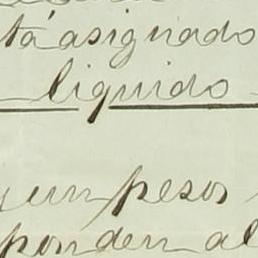 tá asignado
liquido
un pesos
ponden al